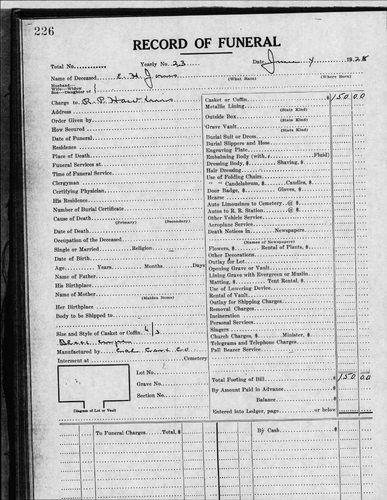 226
RECORD OF FUNERAL
Total No. Yearly No. 23 Date June 4 1928
Name of Deceased E. H. Jones
(What Race) (Where Born)
Husband—
Wife—Widow
Son—Daughter of
Charge to R. P. Hawkins
Address
Order Given by
How Secured
Date of Funeral
Residence
Place of Death
Funeral Services at
Time of Funeral Service
Clergyman
Certifying Physician
His Residence
Number of Burial Certificate
Cause of Death
(Primary) (Secondary)
Date of Death
Occupation of the Deceased
Single or Married Religion
Date of Birth
Age Years Months Days
Name of Father
His Birthplace
Name of Mother
(Maiden Name)
Her Birthplace
Body to be Shipped to
Size and Style of Casket or Coffin 6/3
Manufactured by
Interment at Cemetery
Lot No.
Grave No.
Section No.
Diagram of Lot or Vault
Casket or Coffin $150.00
Metallic Lining
(State Kind)
Outside Box
(State Kind)
Grave Vault
(State Kind)
Burial Suit or Dress
Burial Slippers and Hose
Engraving Plate
Embalming Body (with Fluid)
Dressing Body, $ Shaving, $
Hair Dressing
Use of Folding Chairs
" " Candelabrum, $ Candles, $
Door Badge, $ Gloves, $
Hearse
Auto Limousines to Cemetery @ $
Autos to R. R. Station @ $
Other Vehicle Service
Aeroplane Service
Death Notices in Newspapers
(Names of Newspapers)
Flowers, $ Rental of Plants, $
Other Decorations
Outlay for Lot
Opening Grave or Vault
Lining Grave with Evergreen or Muslin
Matting, $ Tent Rental, $
Use of Lowering Device
Rental of Vault
Outlay for Shipping Charges
Removal Charges
Incineration
Personal Services
Singers
Church Charges, $ Minister, $
Telegrams and Telephone Charges
Pall Bearer Service
Total Footing of Bill $150.00
By Amount Paid in Advance
Balance
Entered into Ledger, page or below
To Funeral Charges Total, $ By Cash $